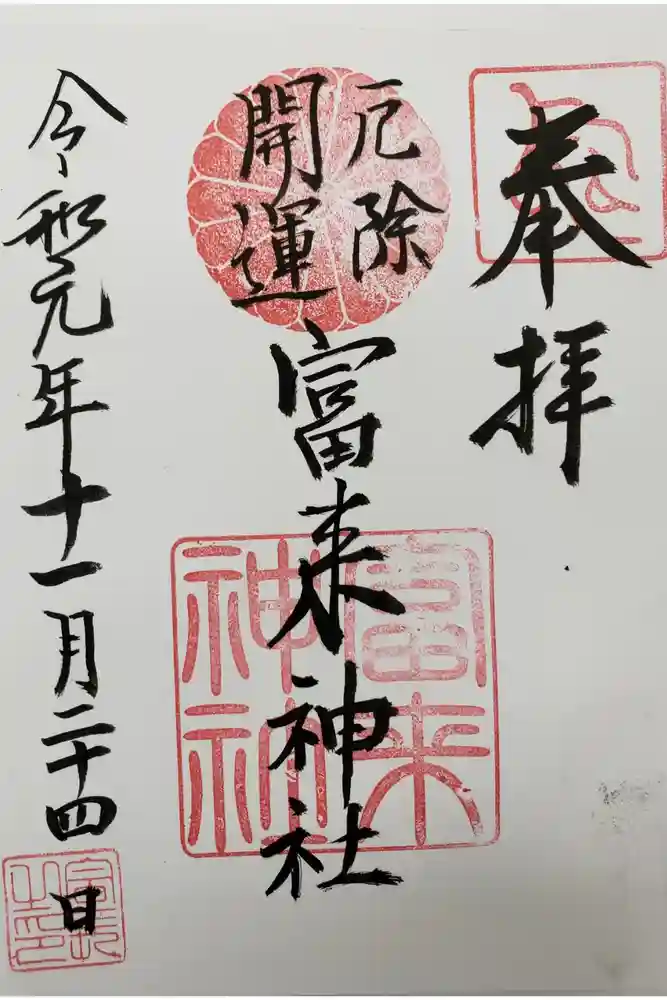 奉拝
厄除
開運
富来神社
富来
神社
令和元年十一月二十四日